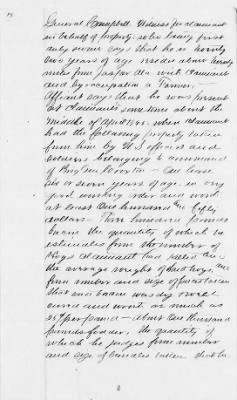 General Campbell Witness for claimant
in behalf of property, who being first
duly sworn says that he is
two years of age resides about
miles from Jasper Ala with claimant
and by occupation a Farmer.
Affiant says that he was present
at claimants some time about the
middle of April 1865. when claimant
had the following property taken
from him by U.S. officers and
soldiers belonging to command
of
six or seven years of age in very
good working order and worth
at least One hundred and fifty
dollars — pounds
bacon the quantity of which he
estimates from the number of
Hogs claimant had killed and
the average weight of said hogs, and
from number and size of
that said bacon was dry well
cured and worth as much as
25¢ per pound — about One thousand
pounds fodder, the quantity of
which he judges from number
and size of bundles taken that he